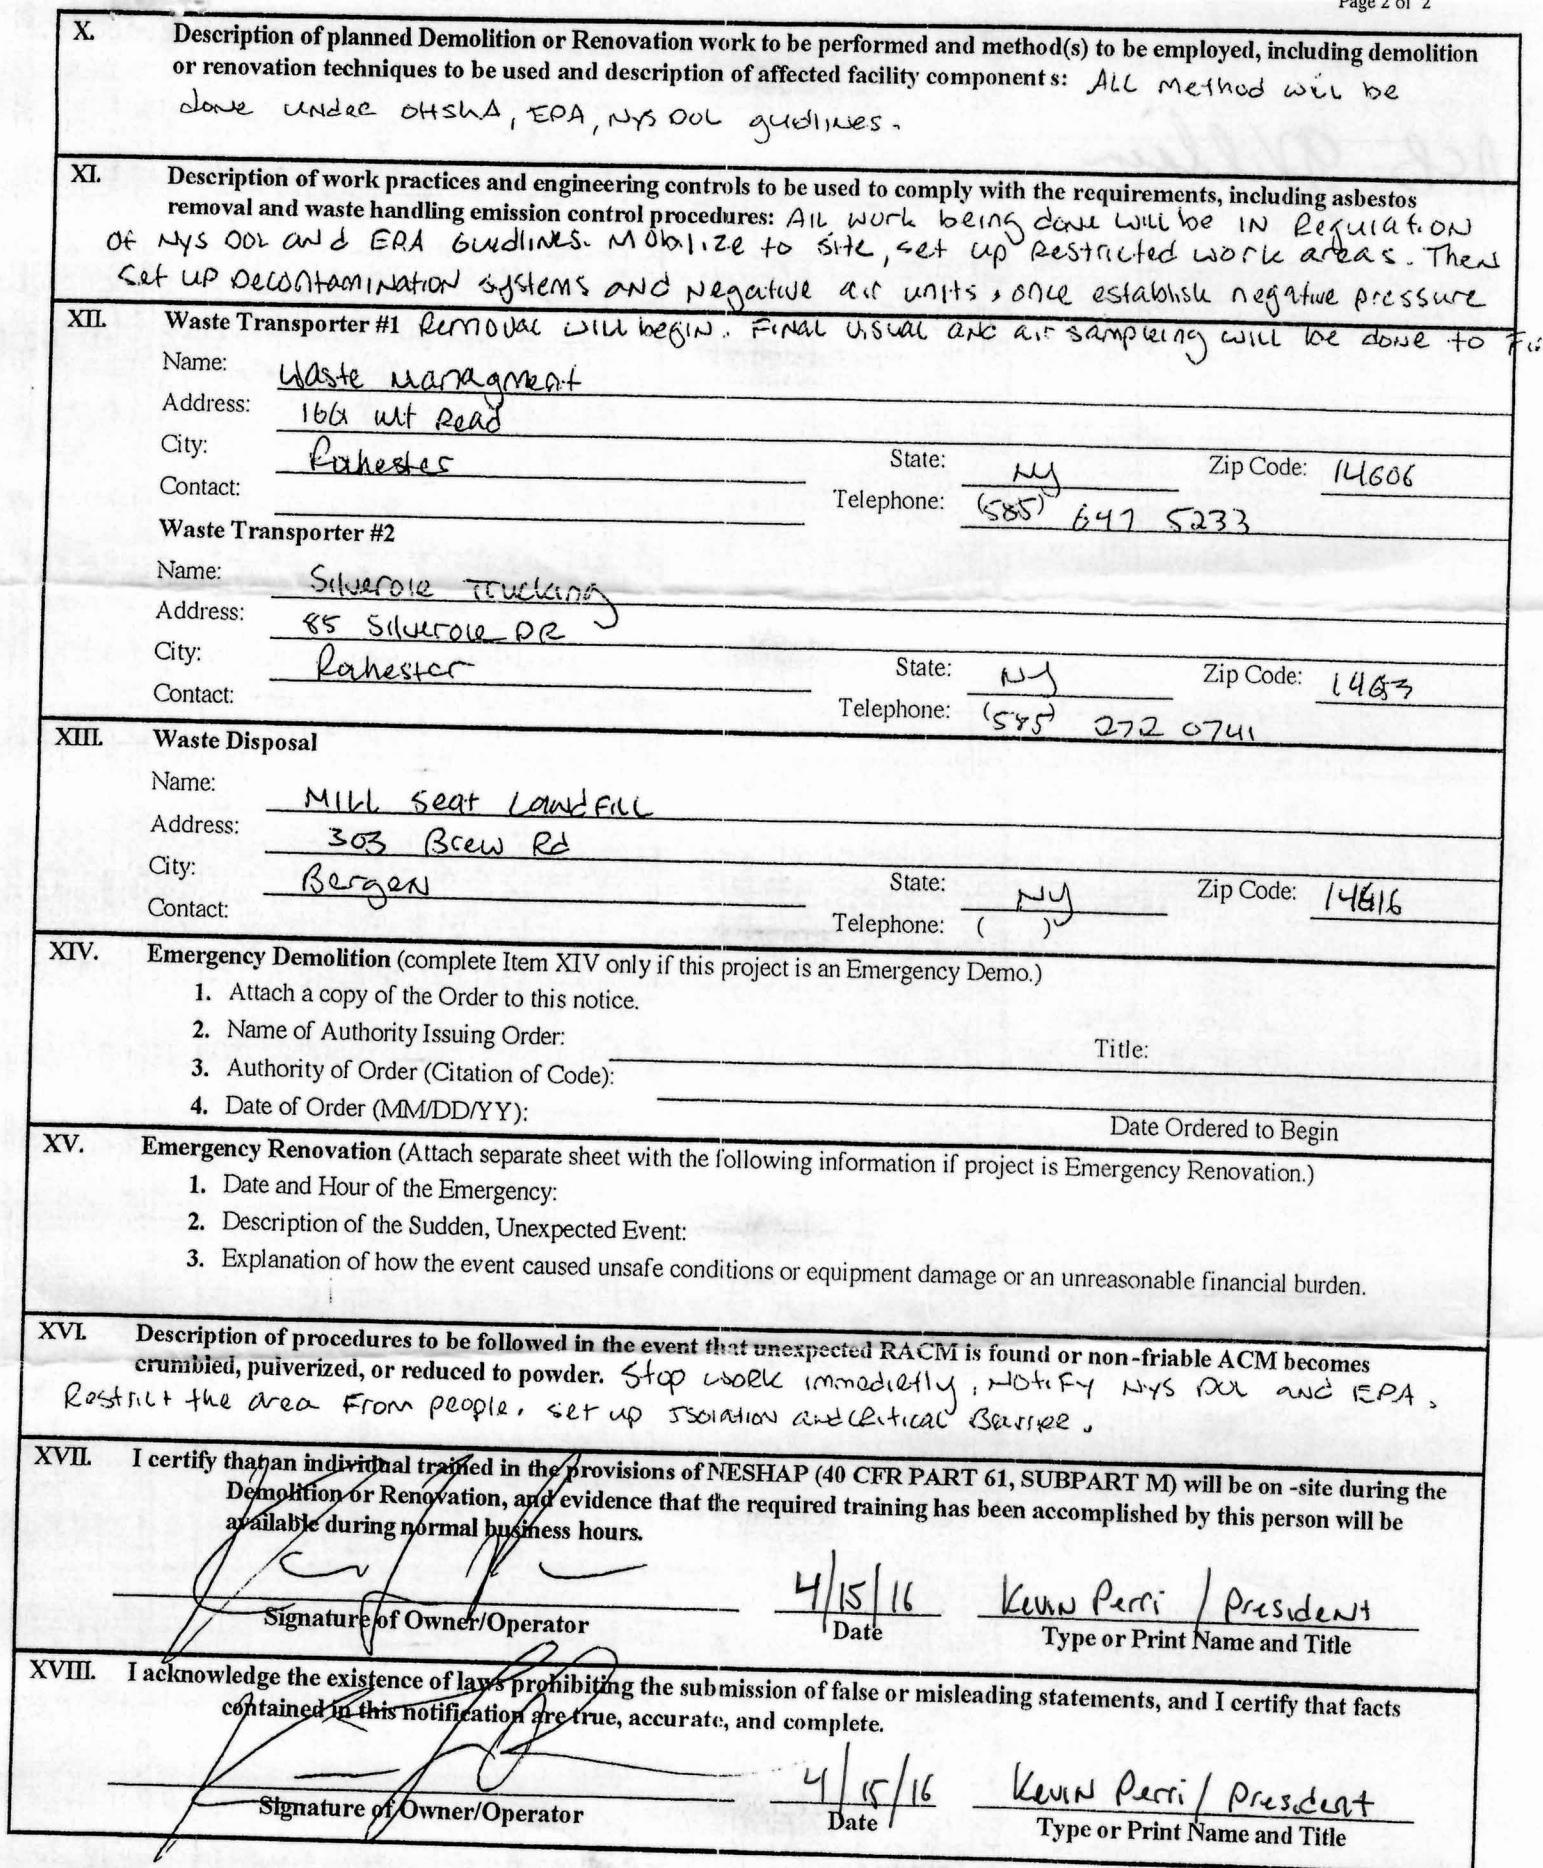 Page 2 of 2
X. Description of planned Demolition or Renovation work to be performed and method(s) to be employed, including demolition
or renovation techniques to be used and description of affected facility component s: ALL Method will be
done under OHSHA, EPA, NYS DOL guidlines.
XI. Description of work practices and engineering controls to be used to comply with the requirements, including asbestos
removal and waste handling emission control procedures: All work being done will be IN Regulation
Of NYS DOL and EPA Guidlines. Mobilize to site, set up Restricted work areas. Then
set up Decontamination systems and Negative air units, once establish negative pressure
XII. Waste Transporter #1 Removal will begin. Final visual and air sampling will be done to
Name: Waste Managment
Address: Mt Read
City: Rochester State: NY Zip Code: 14606
Contact: Telephone: (585) 647 5233
Waste Transporter #2
Name: Silverole Trucking
Address: 85 Silverole DR
City: Rochester State: NY Zip Code:
Contact: Telephone: (585) 272 0741
XIII. Waste Disposal
Name: Mill Seat Landfill
Address: 303 Brew Rd
City: Bergen State: NY Zip Code: 14416
Contact: Telephone: ( )
XIV. Emergency Demolition (complete Item XIV only if this project is an Emergency Demo.)
1. Attach a copy of the Order to this notice.
2. Name of Authority Issuing Order: Title:
3. Authority of Order (Citation of Code):
4. Date of Order (MM/DD/YY): Date Ordered to Begin
XV. Emergency Renovation (Attach separate sheet with the following information if project is Emergency Renovation.)
1. Date and Hour of the Emergency:
2. Description of the Sudden, Unexpected Event:
3. Explanation of how the event caused unsafe conditions or equipment damage or an unreasonable financial burden.
XVI. Description of procedures to be followed in the event that unexpected RACM is found or non-friable ACM becomes
crumbled, pulverized, or reduced to powder. Stop work immedietly, Notify NYS DOL and EPA.
Restrict the area From people. set up Isolation and Critical Barrier.
XVII. I certify that an individual trained in the provisions of NESHAP (40 CFR PART 61, SUBPART M) will be on -site during the
Demolition or Renovation, and evidence that the required training has been accomplished by this person will be
available during normal business hours.
4/15/16 Kevin Perri / President
Signature of Owner/Operator Date Type or Print Name and Title
XVIII. I acknowledge the existence of laws prohibiting the submission of false or misleading statements, and I certify that facts
contained in this notification are true, accurate, and complete.
4/15/16 Kevin Perri / President
Signature of Owner/Operator Date Type or Print Name and Title